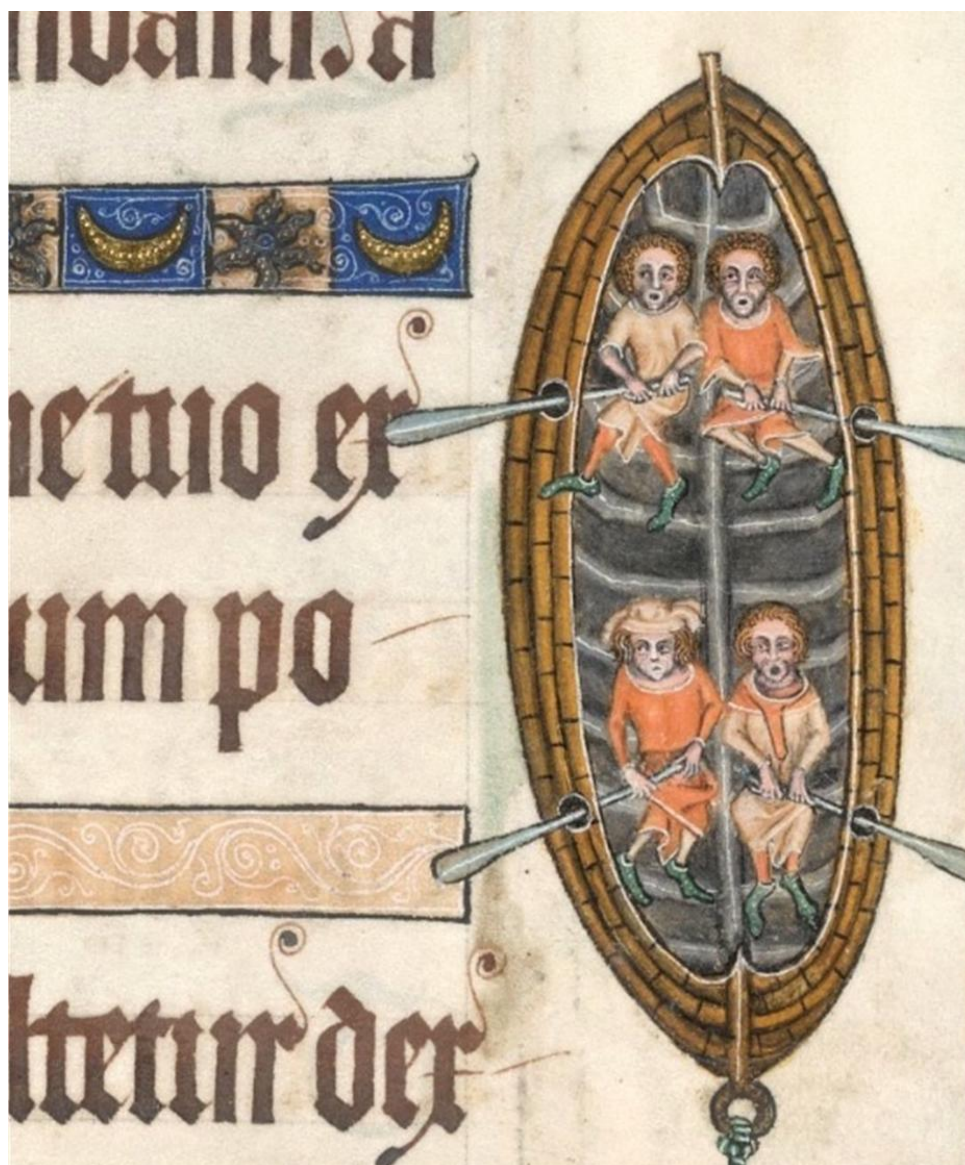 ne tuo ex
um po
ltetur dex